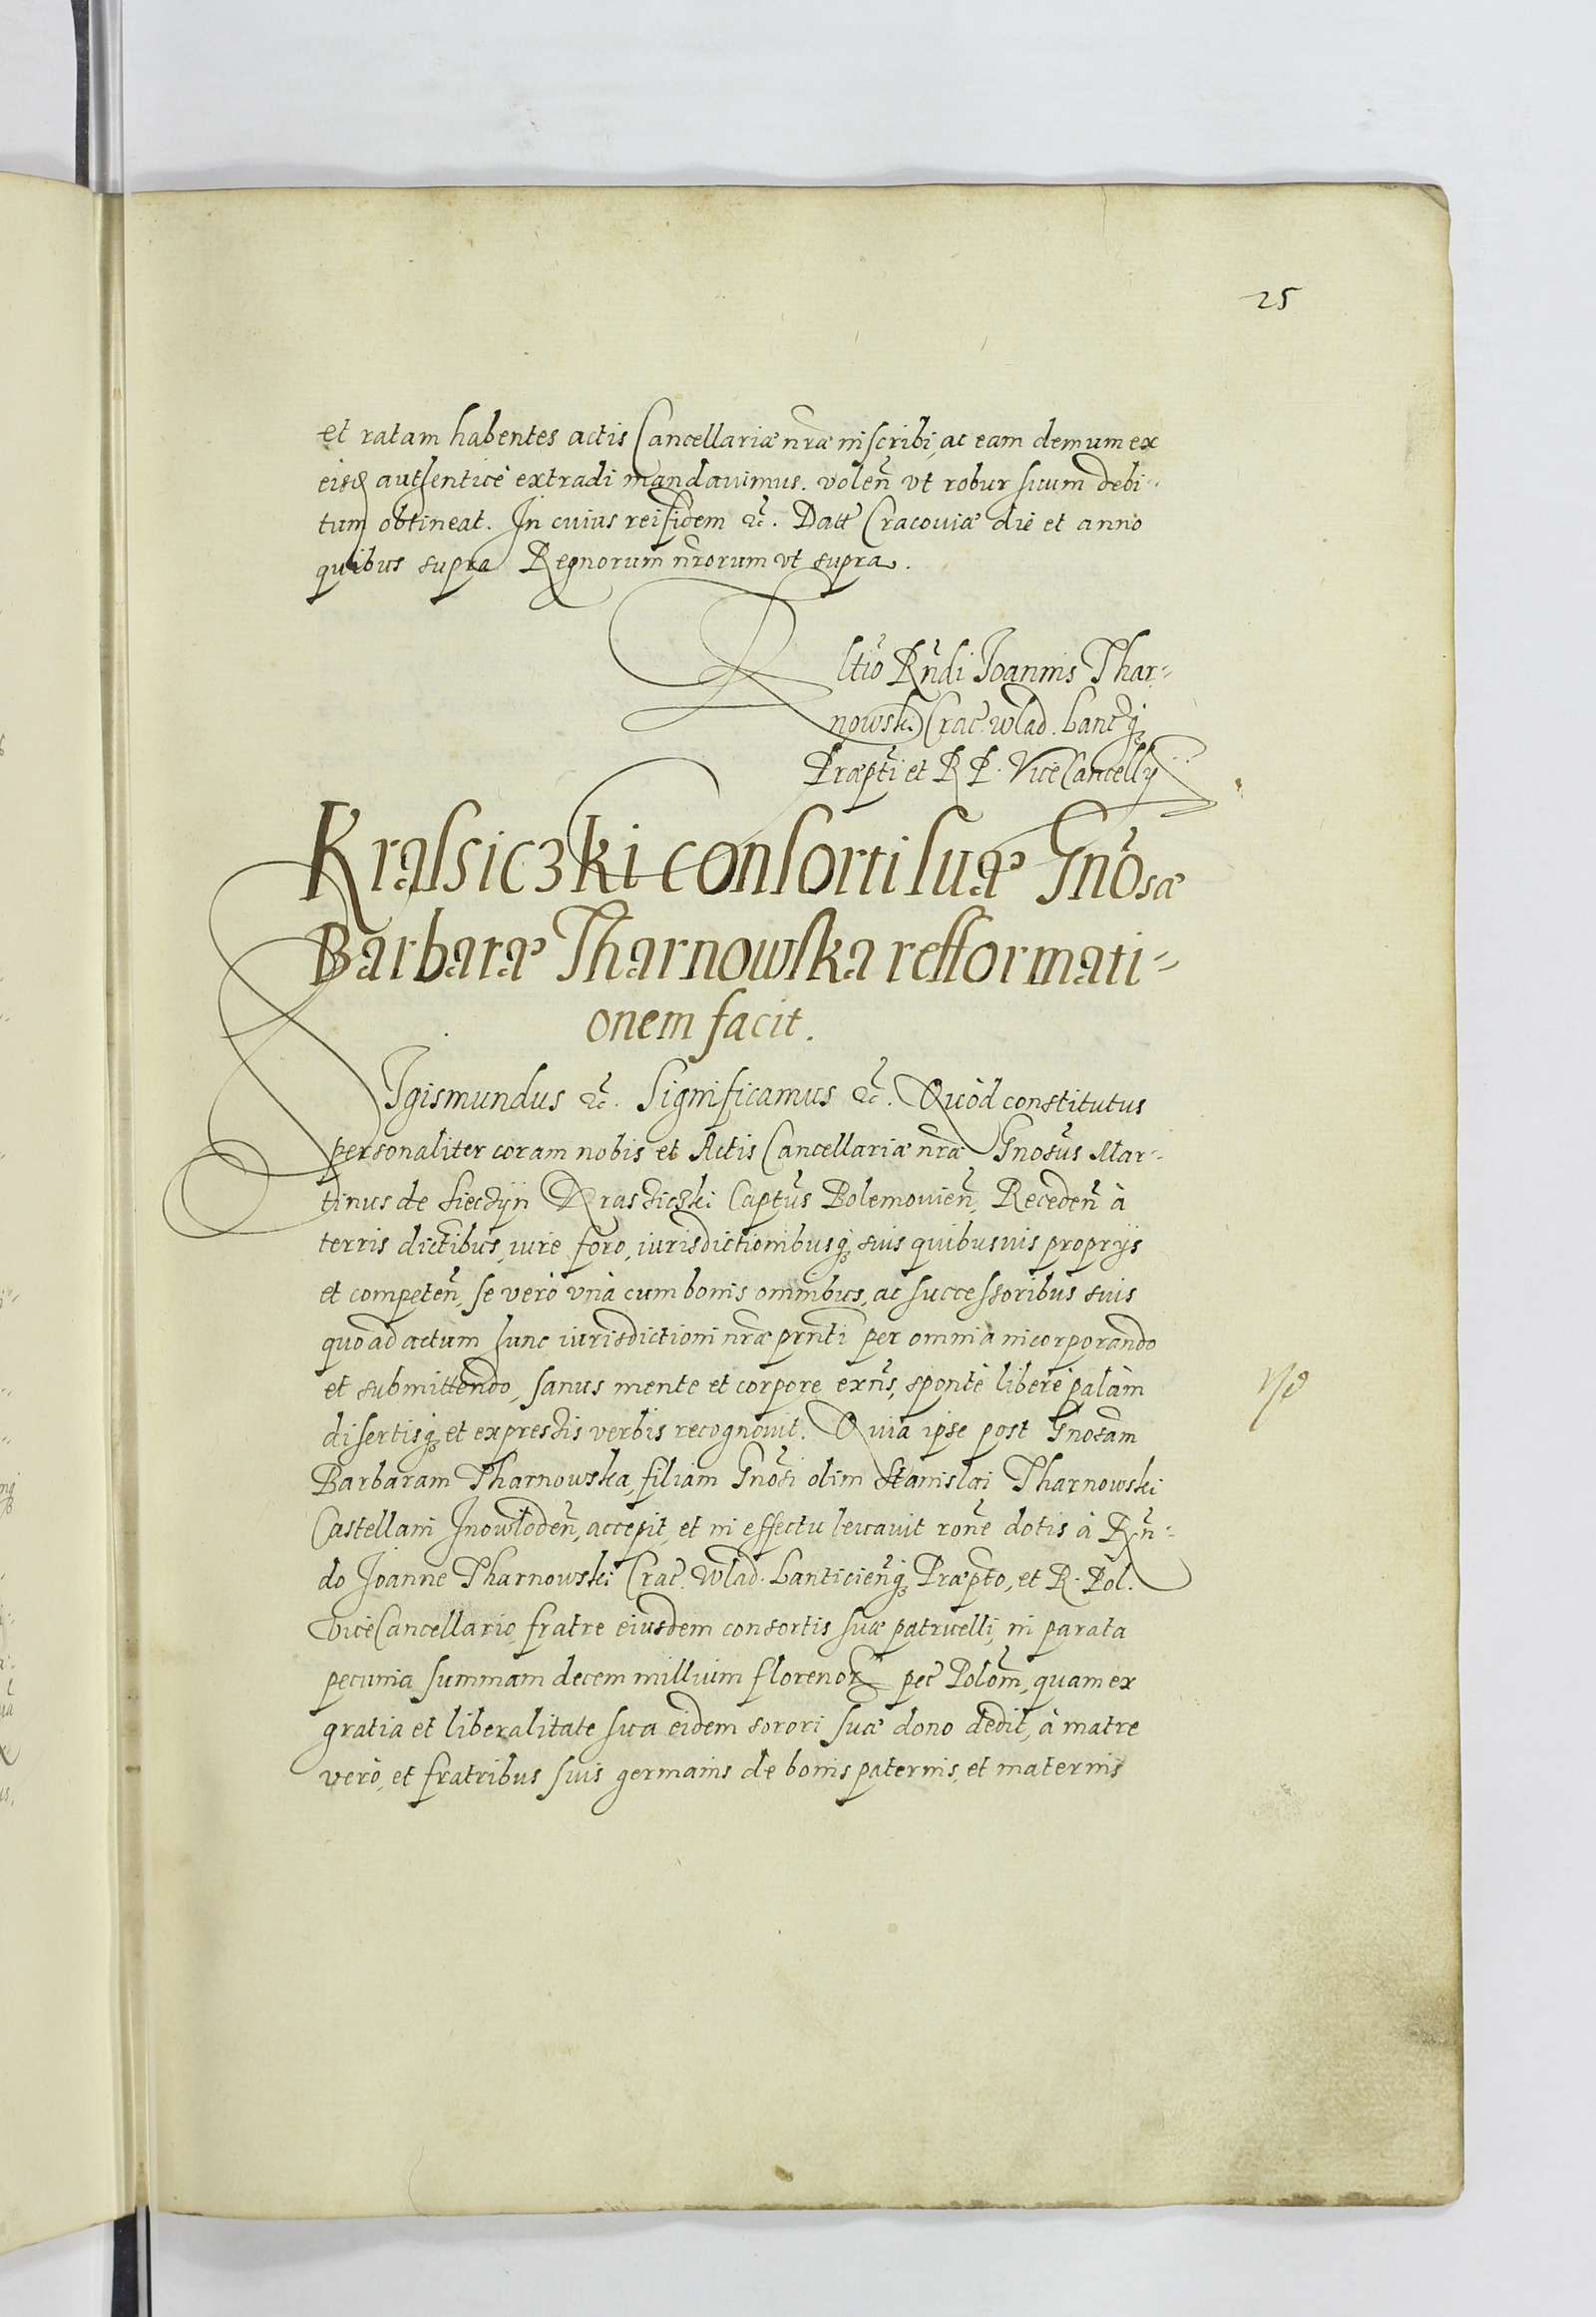 25
et ratam habentes actis Cancellariæ nr̃æ inscribi, ac eam demum ex
eisd authenticè extradi mandauimus. volen̄ vt robur suum debi-
tum obtineat. In cuius rei fidem &c̃. Datt Cracouiæ die et anno
quibus supra Regnorum nr̃orum vt supra.
Rl̃tio Rn̄di Ioannis Thar-
nowski Crac̃. Wlad. Lanc̃q;
Præpt̃i et R P. ViceCancellÿ
Krassiczki consorti suæ Gn̄osæ
Barbaræ Tharnowska refformati-
onem facit.
SIgismundus &c̃. Significamus &c̃. Quòd constitutus
personaliter coram nobis et Actis Cancellariæ nr̃æ Gnosus̃ Mar-
tinus de Siecżyn Krassiczki Capt̃us Bolemouien̄, Receden̄ à
terris dict̃ibus, iure foro, iurisdictionibusq; suis quibusuis proprÿs
et competen̄, se verò vnà cum bonis omnibus, ac successoribus suis
quo ad actum hunc iurisdictioni nr̃æ prn̄ti per omnia incorporando
et submittendo, sanus mente et corpore exn̄s, spontè liberè palàm
disertisq; et expressis verbis recognouit. Quia ipse post Gnosam̃
Barbaram Tharnowska, filiam Gnosi̇̃ olim Stanislai Tharnowski
Castellani Inowloden̄, accepit, et in effectu leuauit ron̄e dotis à Rn̄-
do Joanne Tharnowski Crac̃. Wlad. Lanticien̄q; Præpt̃o, et R. Pol.
ViceCancellario, fratre eiusdem consortis suæ patruelli, in parata
pecunia summam decem millium florenoꝝ pec̃ Polon̄, quam ex
gratia et liberalitate sua eidem sorori suæ dono dedit, à matre
verò, et fratribus suis germanis de bonis paternis, et maternis